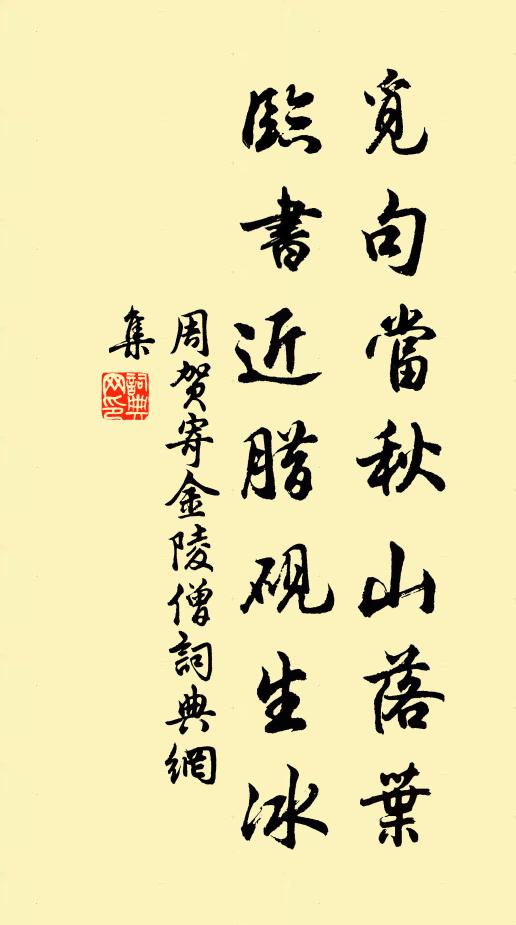 覓句當秋山落葉
臨書近腊硯生冰
周贺寄金陵僧詞典網
集
詞典
网印